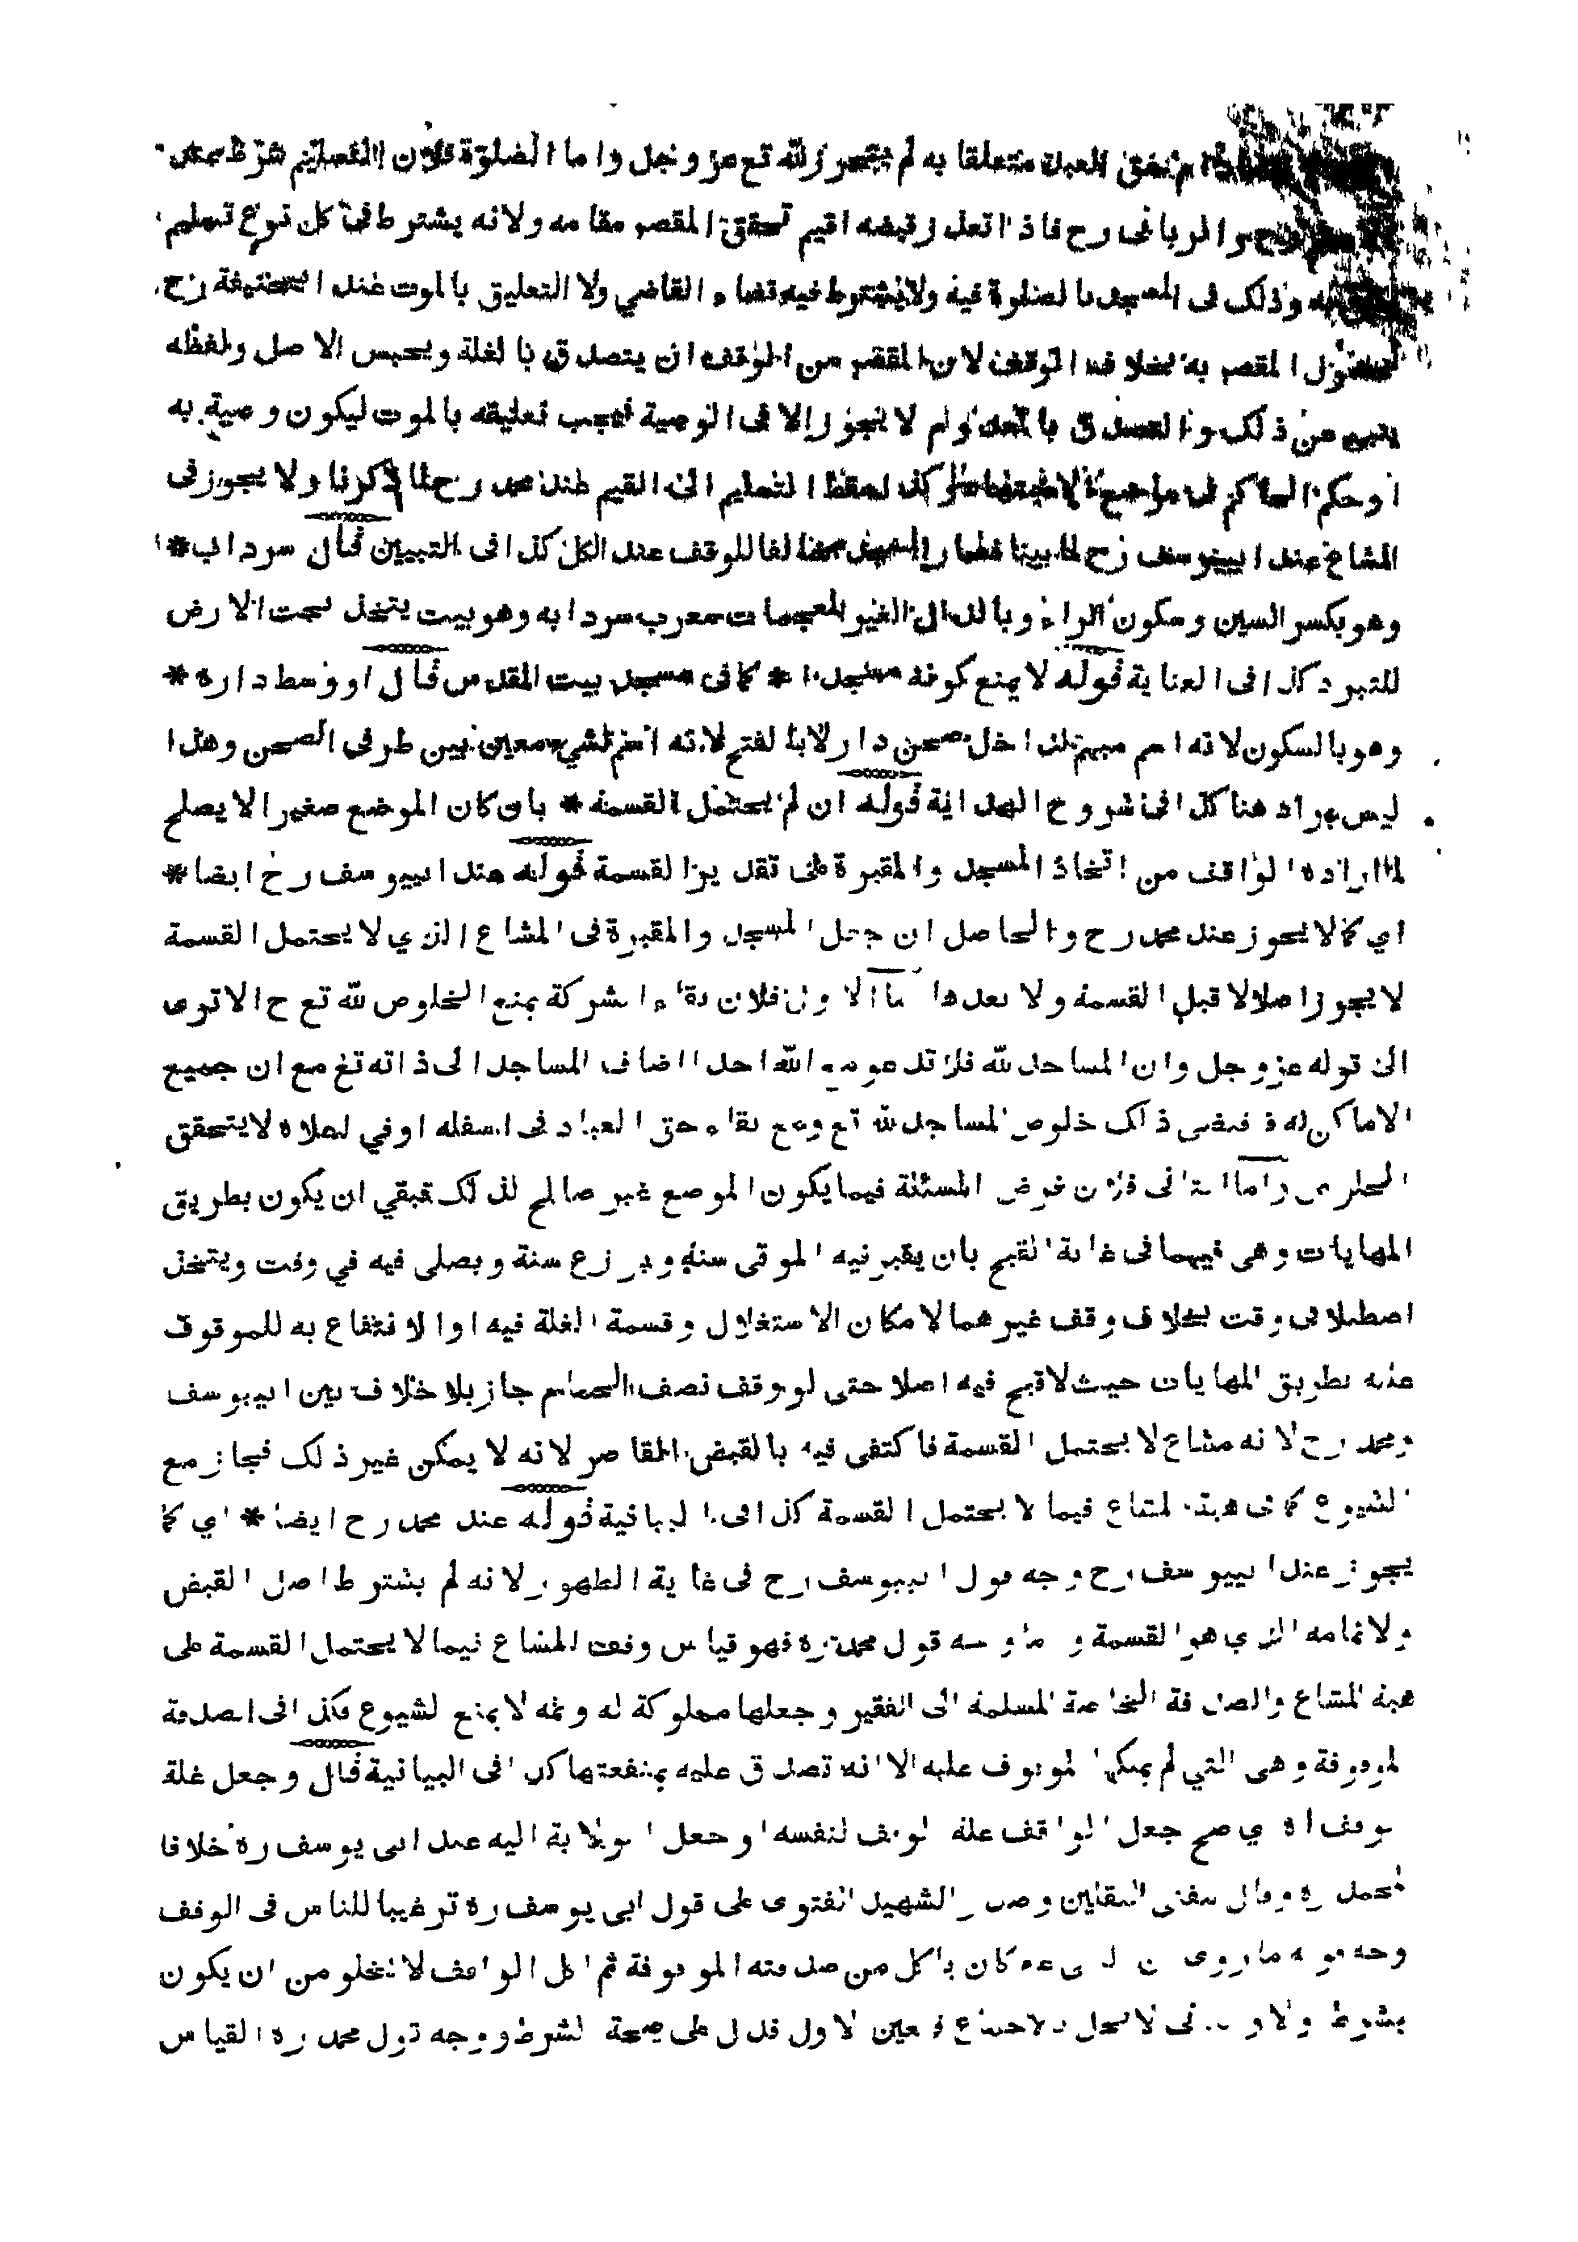 حق العبد متعلقا به لم يتحرر لله تع عز و جل واما الصلوة فلان التسليم شرط
رح فاذا تعذر قبضه اقيم تحقق المقصر مقامه ولانه يشترط فى كل نوع تسليم
وذلك فى المسجد با لصلوة فيه ولا يشترط فيه قضاء القاضي ولا التعليق بالموت عند رح
المقصر به بخلاف الوقف لان المقصر من الوقف ان يتصدق با لغلة ويحبس الاصل ولفظه
عن ذلك و التصدق با لا يجوز الا فى الوصية فيجب تعليقه بالموت ليكون وصية به
او حكم الحاكم فى التسليم الى القيم عند محمد رح لما ذكرنا ولا يجوز فى
المشاع عند ابييوسف رح للوقف عند الكل كذا فى التبيين قال سرداب *
وهو بكسر السين وسكون الراء وبالدال الغير المعجمات معرب سردابه وهو بيت يتخذ تحت الارض
للتبرد كذا فى العناية قوله لا يمنع كونه مسجدا * كما فى مسجد بيت المقدس قال او وسط داره *
وهو بالسكون لانه اسم مبهم لداخل صحن دار لا بالفتح لانه اسم لشيء معين بين طرفى الصحن وهذا
ليس بمراد هنا كذا فى شروح الهداية قوله ان لم يحتمل القسمة * بان كان الموضع صغيرا لا يصلح
لما اراده الواقف من اتخاذ المسجد والمقبرة على تقدير القسمة قوله عند ابييوسف رح ايضا *
اي كما لا يجوز عند محمد رح والحاصل ان جعل المسجد والمقبرة فى المشاع الذي لا يحتمل القسمة
لا يجوز اصلا لا قبل القسمة ولا بعدها اما الاول فلان بقاء الشركة يمنع الخلوص لله تع ح الا ترى
الى قوله عز وجل وان المساجد لله فلا تدعو مع الله احدا اضاف المساجد الى ذاته تع مع ان جميع
الاماكن له فيقتضى ذلك خلوص المساجد لله تع ومع بقاء حق العباد فى اسفله او في اعلاه لا يتحقق
الخلوص واما الثانى فلان فرض المسئلة فيما يكون الموضع غير صالح لذلك فبقي ان يكون بطريق
المهايات وهى فيهما فى غاية القبح بان يقبر فيه الموتى سنة ويزرع سنة ويصلى فيه في وقت ويتخذ
اصطبلا فى وقت بخلاف وقف غيرهما لامكان الاستغلال وقسمة الغلة فيه او الانتفاع به للموقوف
عليه بطريق المهايات حيث لا قبح فيه اصلا حتى لو وقف نصف الحمام جاز بلا خلاف بين ابييوسف
ومحمد رح لانه مشاع لا يحتمل القسمة فاكتفى فيه بالقبض القاصر لانه لا يمكن غير ذلك فجاز مع
الشيوع كما فى هبة المشاع فيما لا يحتمل القسمة كذا فى البيانية قوله عند محمد رح ايضا * اي كما
يجوز عند ابييوسف رح وجه قول ابييوسف رح فى غاية الظهور لانه لم يشترط اصل القبض
ولا تمامه الذي هو القسمة و قول محمد ره فهو قياس وقف المشاع فيما لا يحتمل القسمة على
هبة المشاع والصدقة المسلمة الى الفقير وجعلها مملوكة له وثمه لا يمنع الشيوع فكذا فى الصدقة
الموقوفة وهى التي لم يملكها الموقوف عليه الا انه تصدق عليه بمنفعتها كذا فى البيانية قال وجعل غلة
الوقف اه اي صح جعل الواقف غلة الوقف لنفسه او جعل الولاية اليه عند ابى يوسف ره خلافا
لمحمد ره وقال مفتى الثقلين وصدر الشهيد الفتوى على قول ابى يوسف ره ترغيبا للناس فى الوقف
وجه قوله ما روى كان ياكل من صدقته الموقوفة ثم اكل الواقف لا يخلو من ان يكون
بشرط ولا و لا يحل فتعين الاول فدل على صحة الشرط ووجه قول محمد ره القياس